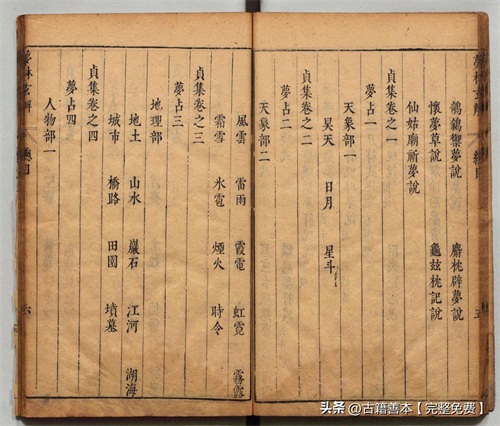 禦夢說 麝枕辟夢說
懷夢草說 龜玆枕記說
仙姑廟祈夢說
貞集卷之一
夢占一
天象部一
昊天 日月 星斗
貞集卷之二
夢占二
天象部二
風雲 雷雨 霞電 虹霓 霧露
霜雪 氷雹 煙火 時令
貞集卷之三
夢占三
地理部
地土 山水 巖石 江河 湖海
城市 橋路 田園 墳墓
貞集卷之四
夢占四
人物部一
夢林玄解 總目 六
头条 @古籍善本【完整免费】